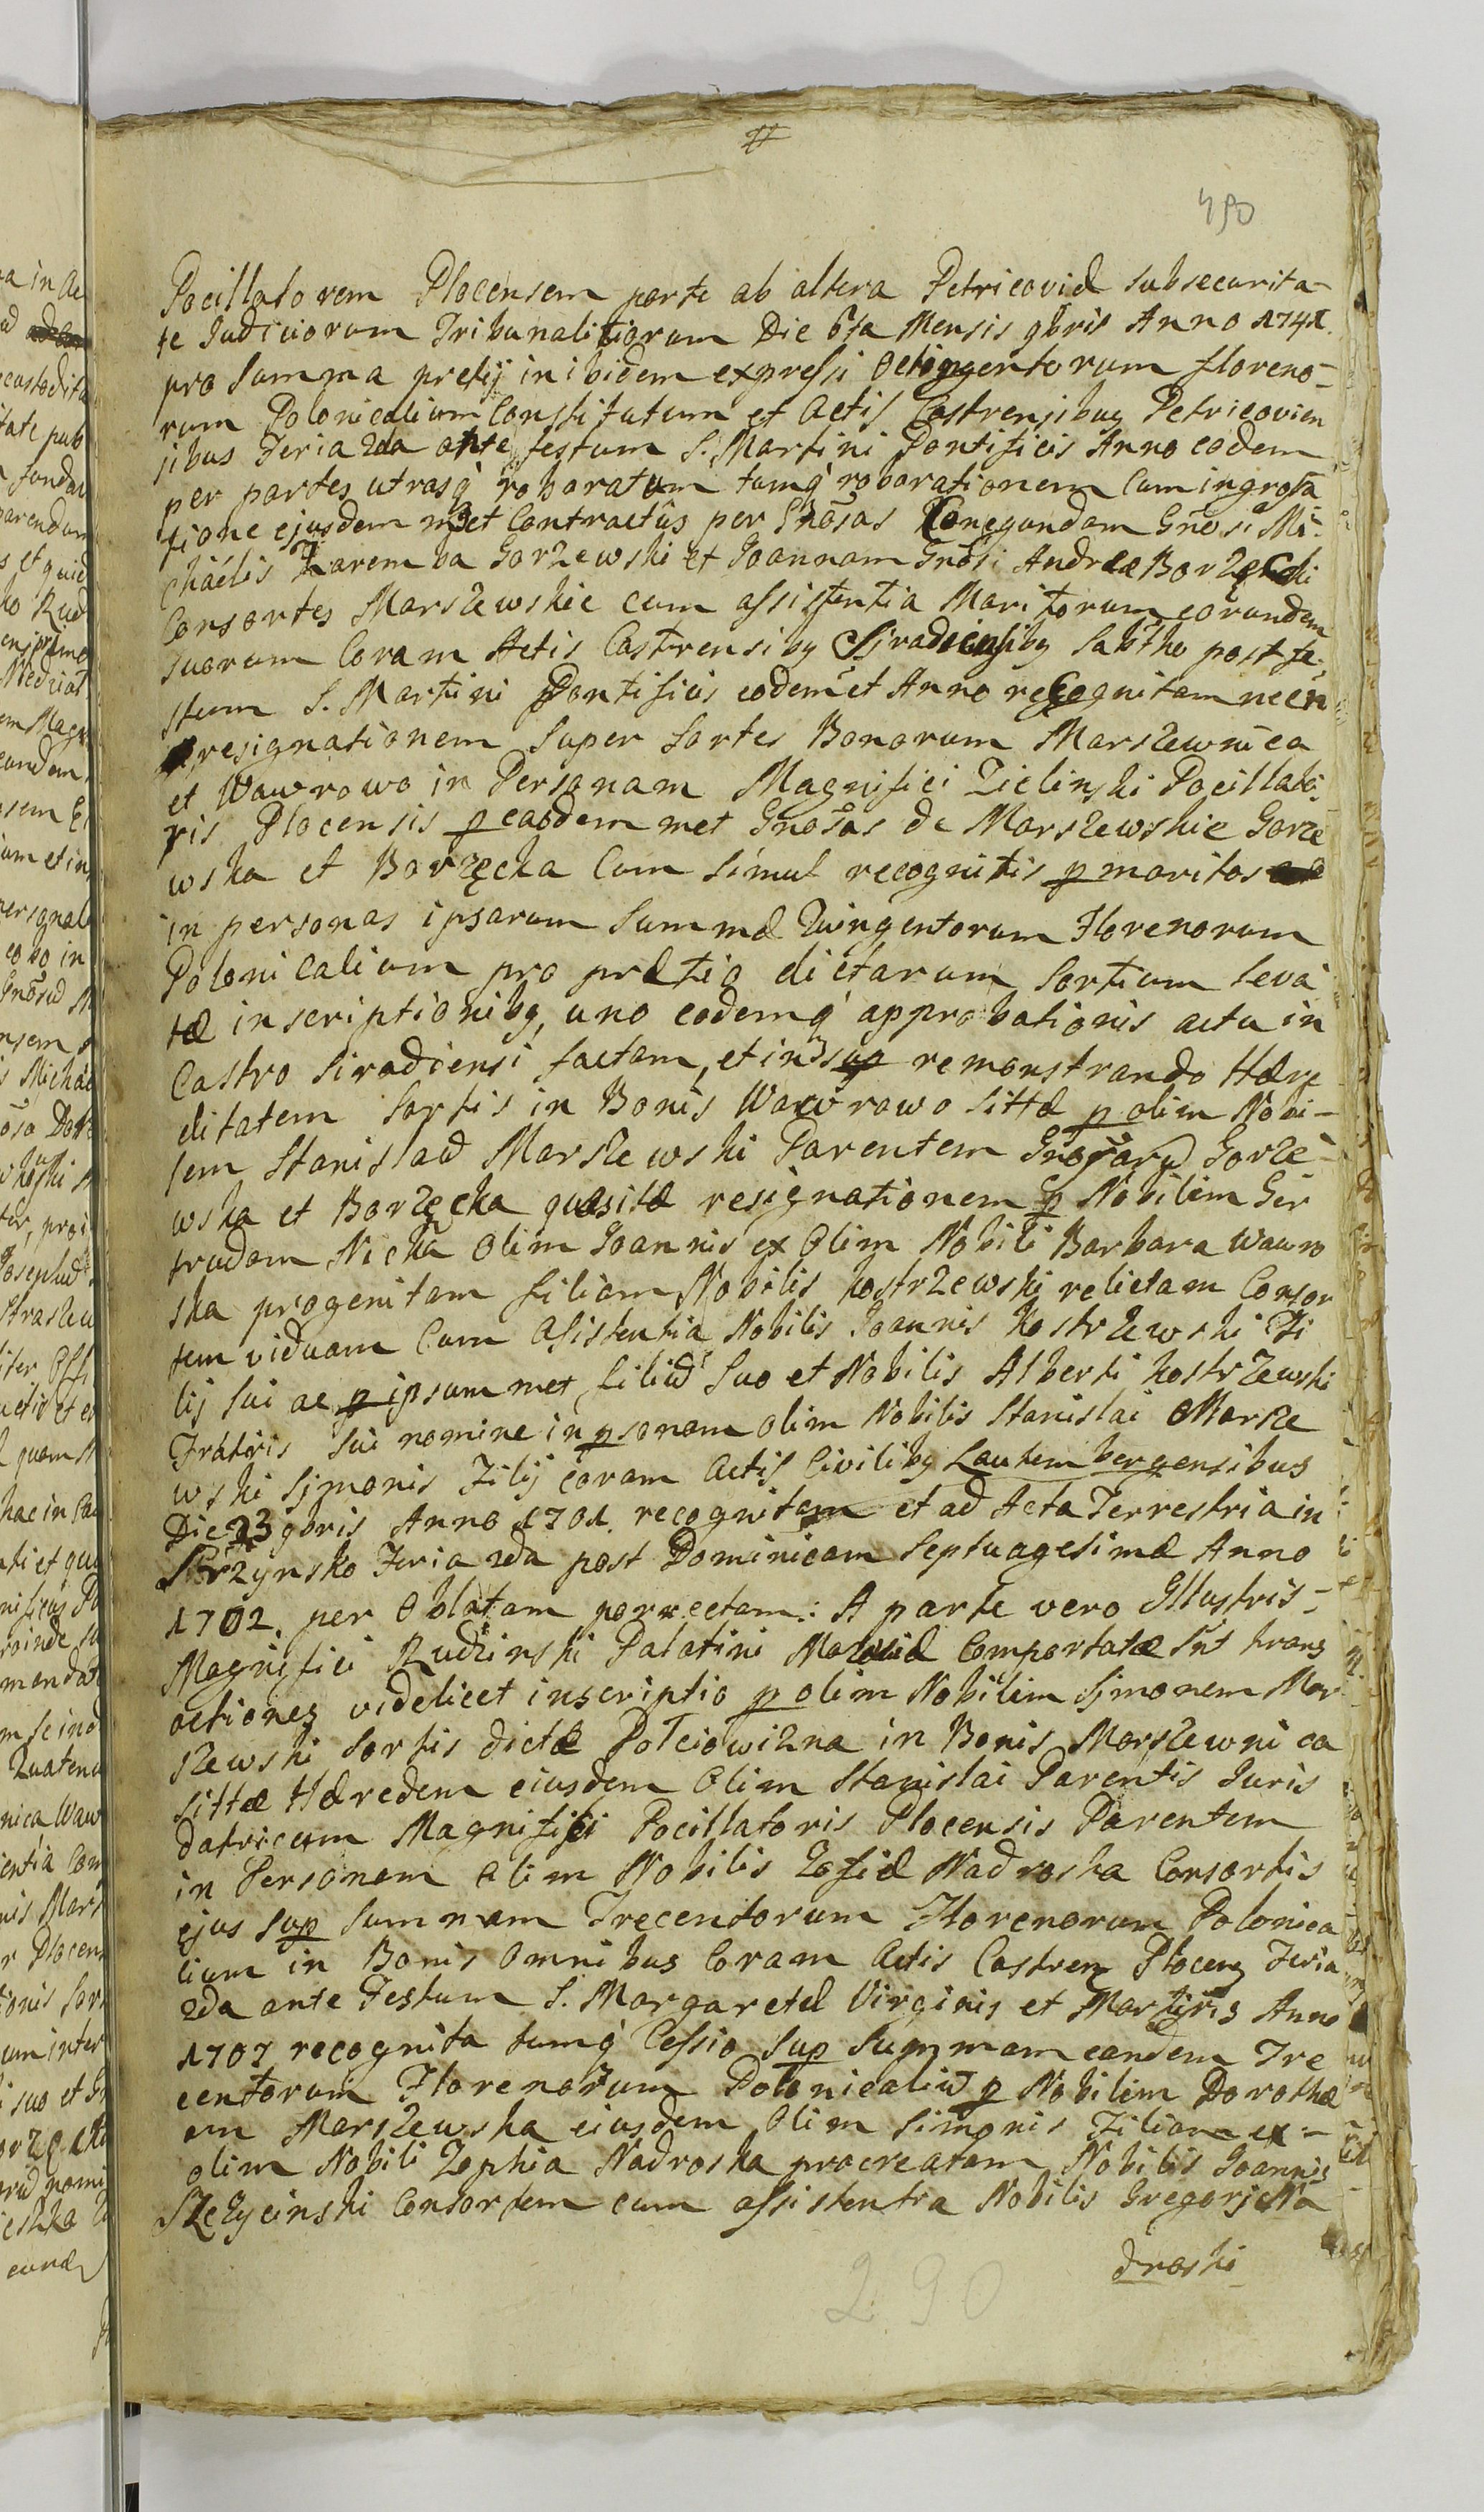 #
490
Pocillatorem Plocensem parte ab altera Petricoviæ sub securita-
te Judiciorum Tribunalitiorum Die 6ta Mensis 9bris Anno 1741.
pro Summa pretij inibidem expressi Octingentorum floreno-
rum Polonicalium Constitutum et Actis Castrensibus Petricovien
sibus Feria 2da ante festum S. Martini Pontificis Anno eodem
per partes utrasq' roboratum tumq' roborationem Cum ingrossa
tione ejusdem met Contractûs per Gnosas Conegundam Gnosi Mi-
chäelis Zaremba Gorzewski et Joannam Gnosi Andreæ Borzęcki
Consortes Marszewskie cum assistentia Maritorum eorundem
suorum Coram Actis Castrensibq Sjradiensibq Sabbho post fe-
stum S. Martini Pontificis eodem et Anno recognitam necn
resignationem Super Sortes Bonorum Marszewnica
et Wawrowo in Personam Magnifici Zielinski Pocillato-
ris Plocensis p easdem met Gnosas de Marszewskie Gorze
wska et Borzęcka Cum simul recognitis p maritos
in personas ipsarum Summæ Quingentorum Florenorum
Polonicalium pro prætio dictarum Sortium leva
tæ inscriptionibq, uno eodemq' approbationis actu in
Castro Siradiensi factam, et in sup remonstrando Hære
ditatem Sortis in Bonis Wawrowo sittæ p olim Nobi-
lem Stanislaũ Marszewski Parentem Gnosarũ Gorze-
wska et Borzęcka quæsitæ resignationem p Nobilem Ger
trudam Nicka Olim Joannis ex Olim Nobili Barbara Wawro
ska progenitam filiam Nobilis Kostrzewski relictam Consor
tem viduam Cum Asistentia Nobilis Joannis Kostrzewski Fi
lij sui ac p ipsummet filiũ Suo et Nobilis Alberti Kostrzewski
Fratris Sui nomine in psonam olim Nobilis Stanislai Marsze
wski Sjmonis Filij coram Actis Civilibq Lautembergensibus
Die 23 9bris Anno 1701. recognitam et ad Acta Terrestria in
Szrzynsko Feria 2da post Dominicam Septuagesimæ Anno
1702. per Oblatam porrectam: A parte vero Illustris-
Magnifici Rudzinski Palatini Mazoviæ Comportatæ Snt trans
actiones videlicet inscriptio p olim Nobilem Sjmonem Mar
szewski Sortis dictæ Potciowizna in Bonis Marszewnica
sittæ Hæredem eiusdem Olim Stanislai Parentis Juris
datricem Magnifici Pocillatoris Plocensis Parentem
in Personam olim Nobilis Zofiæ Nadroska Consortis
ejus sup Summam Trecentorum Florenorum Polonica
lium in Bonis Omnibus Coram Actis Castren Plocens Feria
2da ante Festum S. Margaretæ Virginis et Martiris Anno
1707 recognita tumq' Cessio Sup Summam eandem Tre
centorum Florenorum Polonicaliũ p Nobilem Dorothæ
am Marszewska eiusdem Olim Simonis Filiam ex-
olim Nobili Zophia Nadroska procreatam Nobilis Joannis
Szczycinski Consortem cum assistentia Nobilis Gregorj Na
droski
290